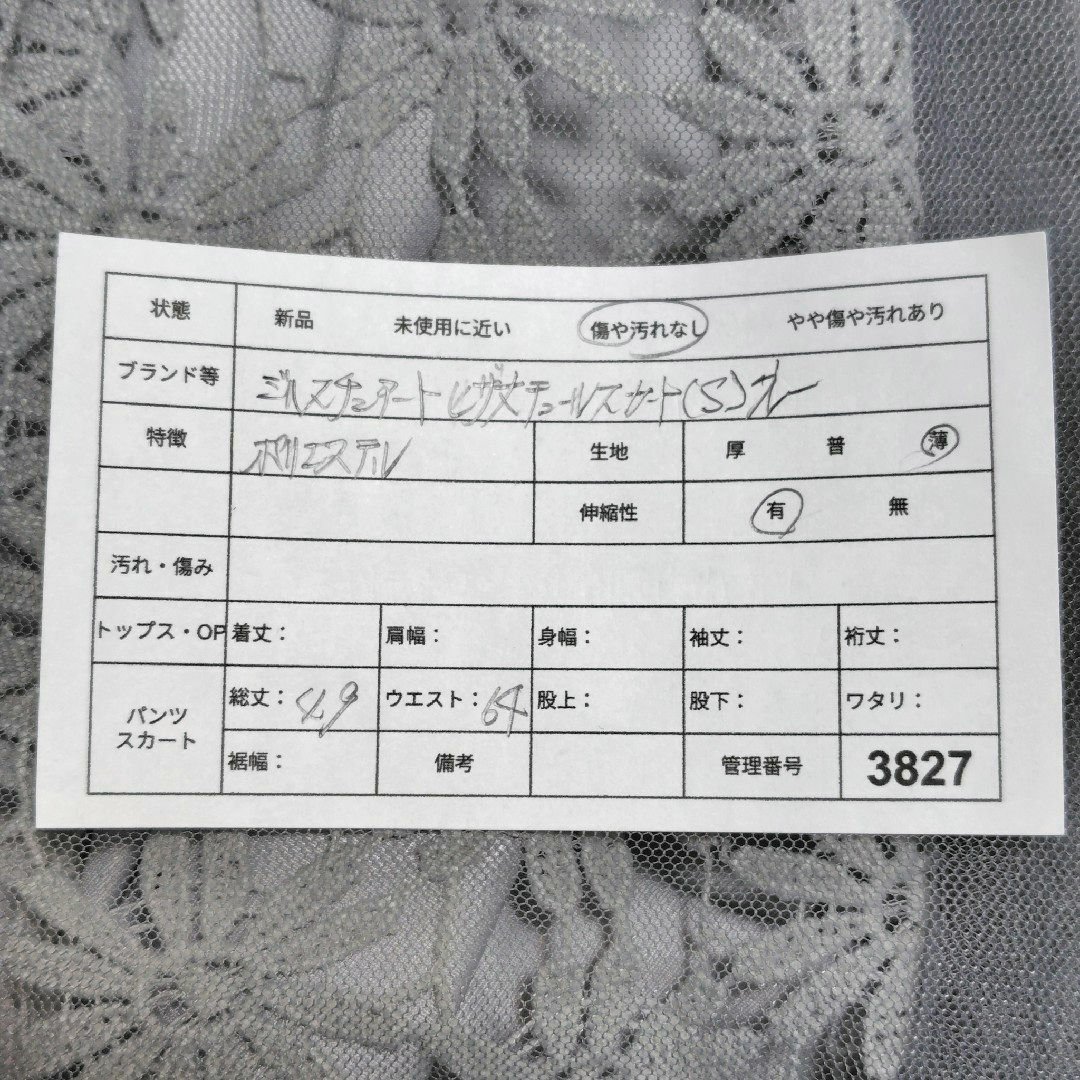 状態 新品 未使用に近い 傷や汚れなし やや傷や汚れあり
ブランド等 ジルスチュアート ヒザ丈チュールスカート(S)グレー
特徴 ポリエステル 生地 厚 普 薄
伸縮性 有 無
汚れ・傷み
トップス・OP 着丈: 肩幅: 身幅: 袖丈: 裄丈:
パンツ スカート 総丈:49 ウエスト:64 股上: 股下: ワタリ:
裾幅: 備考 管理番号 3827